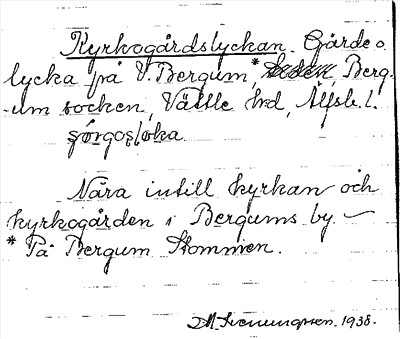 Kyrkogårdslyckan. Gärde o.
lycka på V. Bergum*, Berg-
um socken, Vättle hd, Älfsb. l.
Nära intill kyrkan och
kyrkogården i Bergums by. –
* På Bergum Stommen.
M. Sveningsson. 1938.